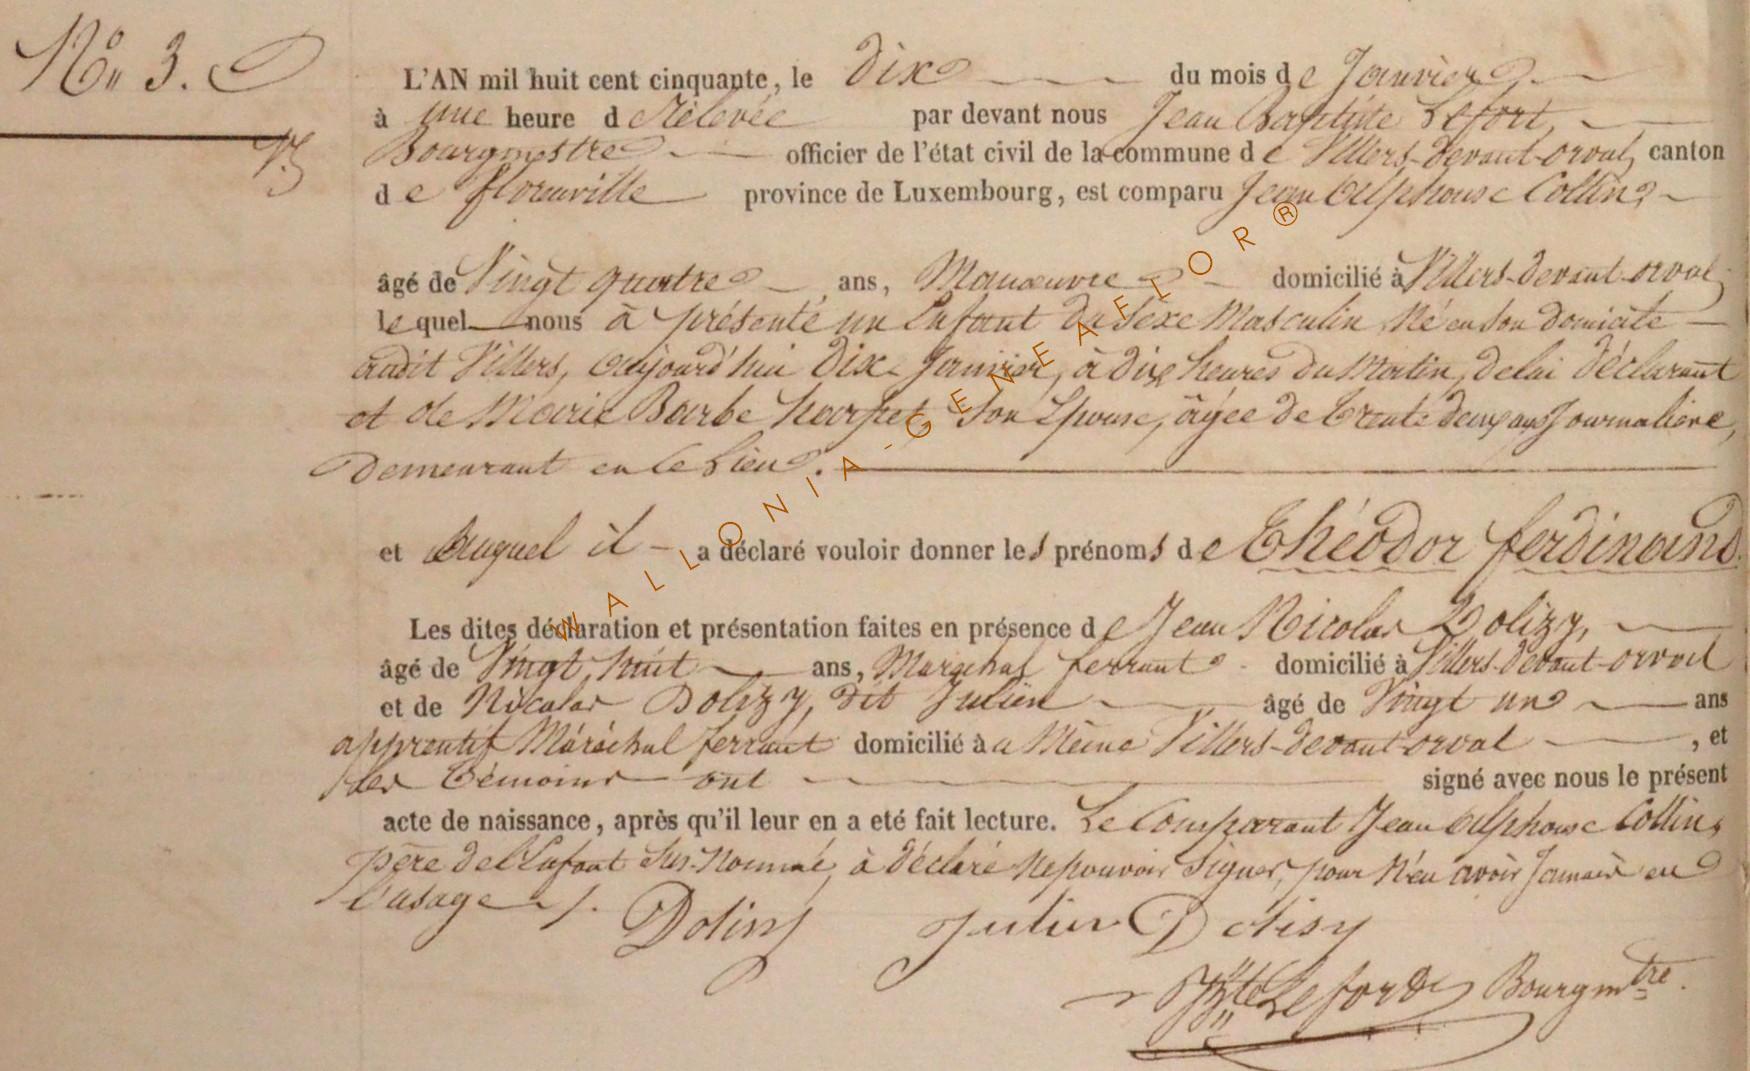 N° 3.
L'AN mil huit cent cinquante, le dix du mois de Janvier
à une heure de Rélevée par devant nous Jean Baptiste Lefort,
Bourgmestre officier de l'état civil de la commune de Villers-devant-orval, canton
de florenville province de Luxembourg, est comparu Jean Alphonse Collin,
âgé de Vingt quatre ans, Manœuvre domicilié à Villers-devant-orval,
lequel nous à présenté un Enfant du Sexe Masculin Né en Son domicile
audit Villers, aujourd'hui dix Janvier, à dix heures du Matin, de lui déclarant
et de Marie Barbe Son Epouse, âgée de trente deux ans Journalière,
demeurant en ce Lieu.
et auquel il a déclaré vouloir donner les prénoms de Théodor ferdinand.
Les dites déclaration et présentation faites en présence de Jean Nicolas Dolizy,
âgé de Vingt huit ans, Maréchal ferrant domicilié à Villers-devant-orval
et de Nicolas Dolizy, dit Julien âgé de Vingt un ans
apprentif Maréchal ferrant domicilié à a Même Villers-devant-orval, et
les témoins ont signé avec nous le présent
acte de naissance, après qu'il leur en a eté fait lecture. Le Comparant Jean Alphonse Collin,
père de l'Enfant Sus-Nommé, à déclaré Ne pouvoir Signer, pour N'en avoir Jamais eu
l'usage.
Julien Dolisy
Bte Lefort Bourgmtre.
WALLONIA-GENEAFLOR®